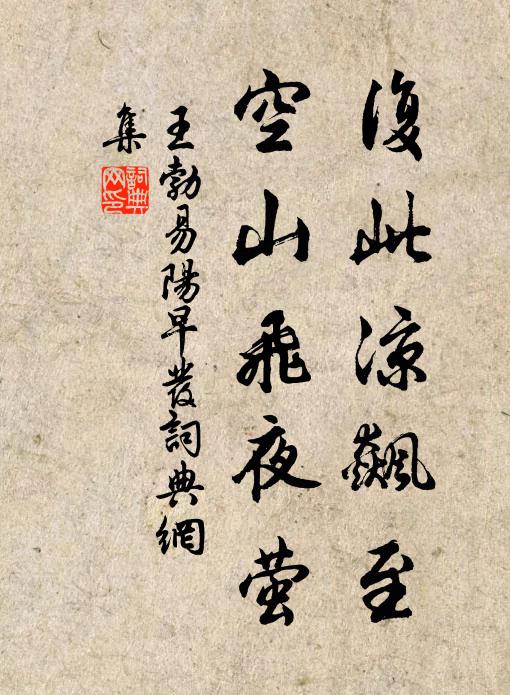 復此涼飆至
空山飛夜螢
王勃易陽早發詞典網
集
詞典
网印